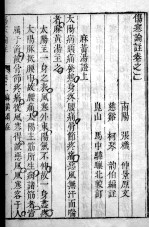 傷寒論註卷之二
南陽 張機 仲景原文
慈谿 柯琴 韵伯編註
崑山 馬中驊驤北較訂
麻黃湯證上
太陽病頭痛發熱身疼腰痛骨節疼痛惡風無汗而喘
者麻黃湯主之
太陽主一身之表風寒外束陽氣不伸故一身盡疼
太陽脈抵腰中故腰痛太陽主筋所生病諸筋者皆
屬于節故骨節疼痛從風寒得故惡風風寒客于人